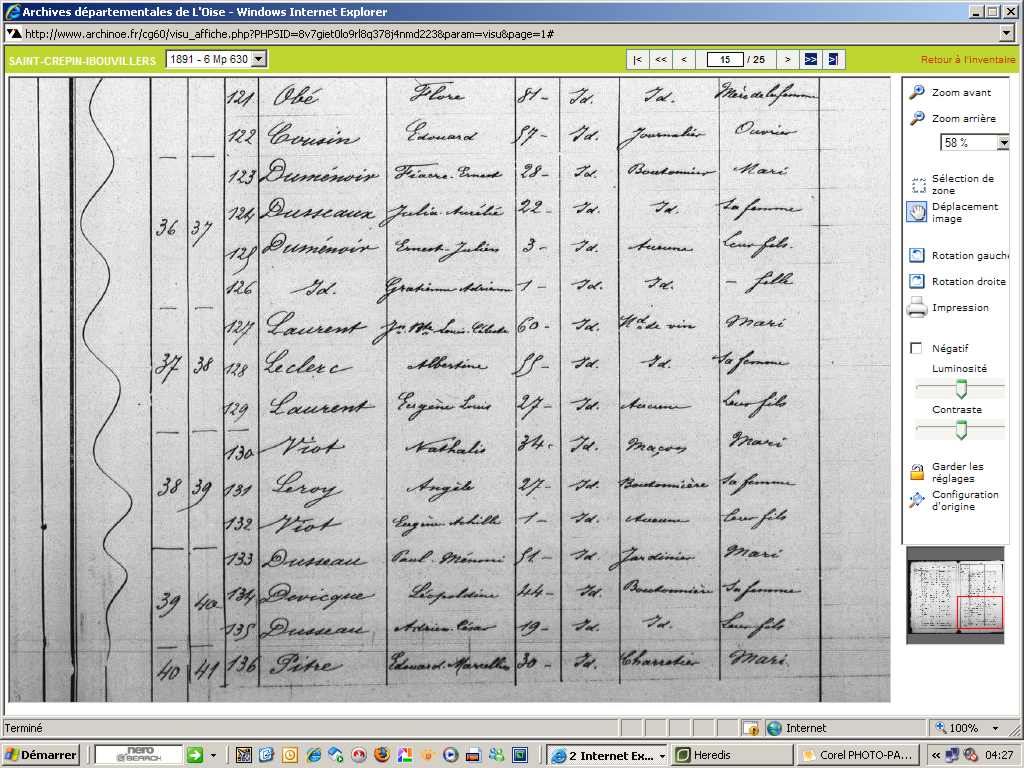 Archives départementales de L'Oise - Windows Internet Explorer
http://www.archinoe.fr/cg60/visu_affiche.php?PHPSID=8v7giet0lo9rl8q378j4nmd223&param=visu&page=1#
SAINT-CREPIN-IBOUVILLERS 1891 - 6 Mp 630 |< << < 15 / 25 > >> >| Retour à l'inventaire
121 Obé Flore 81 - Id. Id. Mère de la femme
122 Cousin Edouard 57 - Id. Journalier Ouvrier
123 Duménoir Fiacre-Ernest 28 - Id. Boutonnier Mari
36 37 124 Dusseaux Julia-Aurélie 22 - Id. Id. Sa femme
125 Duménoir Ernest-Julien 3 - Id. Aucune Leur fils.
126 Id. Gratienne Adrienne 1 - Id. Id. - fille
127 Laurent Jn. Bte Louis-Céleste 60 - Id. Md. de vin Mari
37 38 128 Leclerc Albertine 55 - Id. Id. Sa femme
129 Laurent Eugène Louis 27 - Id. Aucune Leur fils
130 Viot Nathalis 34 - Id. Maçon Mari
38 39 131 Leroy Angèle 27 - Id. Boutonnière Sa femme
132 Viot Eugène Achille 1 - Id. Aucune Leur fils
133 Dusseau Paul - 51 - Id. Jardinier Mari
39 40 134 Devicque Léopoldine 44 - Id. Boutonnière Sa femme
135 Dusseau Adrien César 19 - Id. Id. Leur fils
40 41 136 Pitre Edouard-Marcellin 30 - Id. Charretier Mari.
Zoom avant
Zoom arrière
58 %
Sélection de
zone
Déplacement
image
Rotation gauche
Rotation droite
Impression
Négatif
Luminosité
Contraste
Garder les
réglages
Configuration
d'origine
Terminé Internet 100%
Démarrer nero SEARCH 2 Internet Ex... Heredis Corel PHOTO-PA... « 04:27